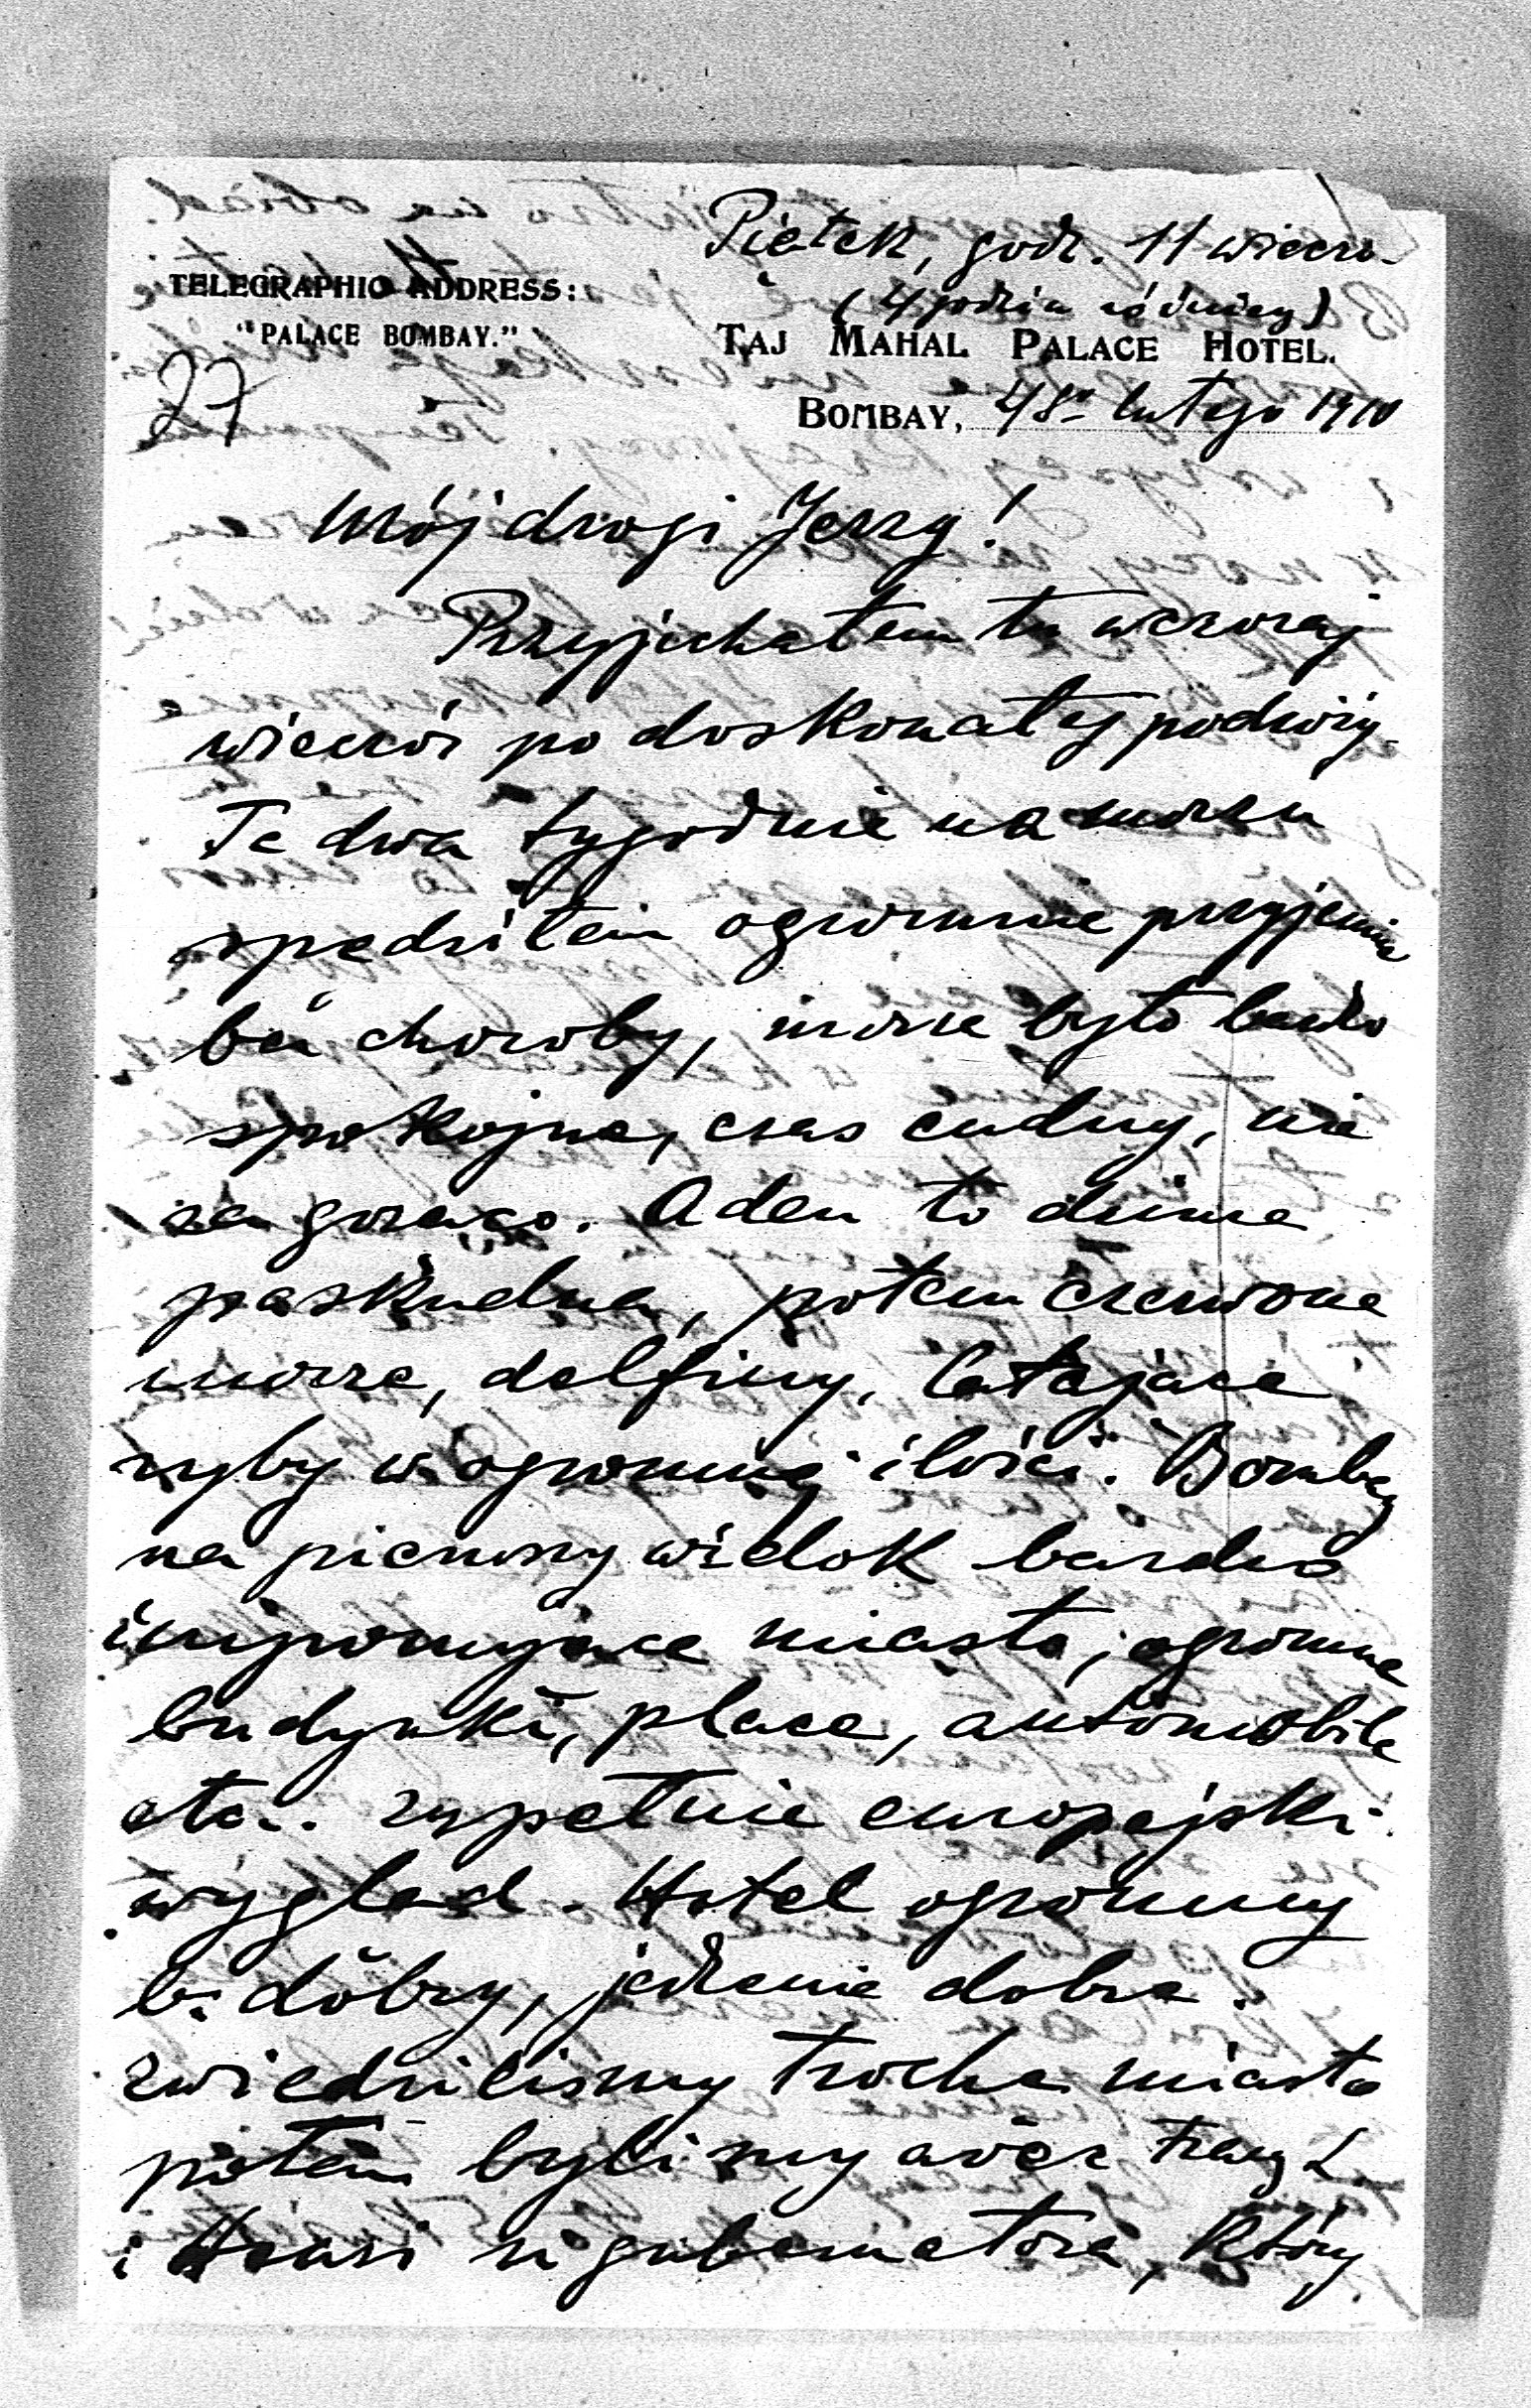 Piątek, godz. 11 wieczo-
(4 godzin różnicy)
TELEGRAPHIC ADDRESS:
"PALACE BOMBAY."
TAJ MAHAL PALACE HOTEL.
27
BOMBAY, 18º lutego 1910
Mój drogi Jerzy!
Przyjechałem tu wczoraj
wieczór po doskonałej podróży.
Te dwa tygodnie na morzu
spędziłem ogromnie przyjemnie
bez choroby, morze było bardzo
spokojne, czas cudny, nie
za gorąco. Aden to dziura
paskudna, potem czerwone
morze, delfiny, latające
ryby w ogromnej ilości. Bombay
na pierwszy widok bardzo
imponujące miasto, ogromne
budynki, place, automobile
etc.. zupełnie europejski
wygląd. Hotel ogromny
b. dobry, jedzenie dobre.
zwiedziliśmy trochę miasto
potem byliśmy avec
i u gubernatora, który